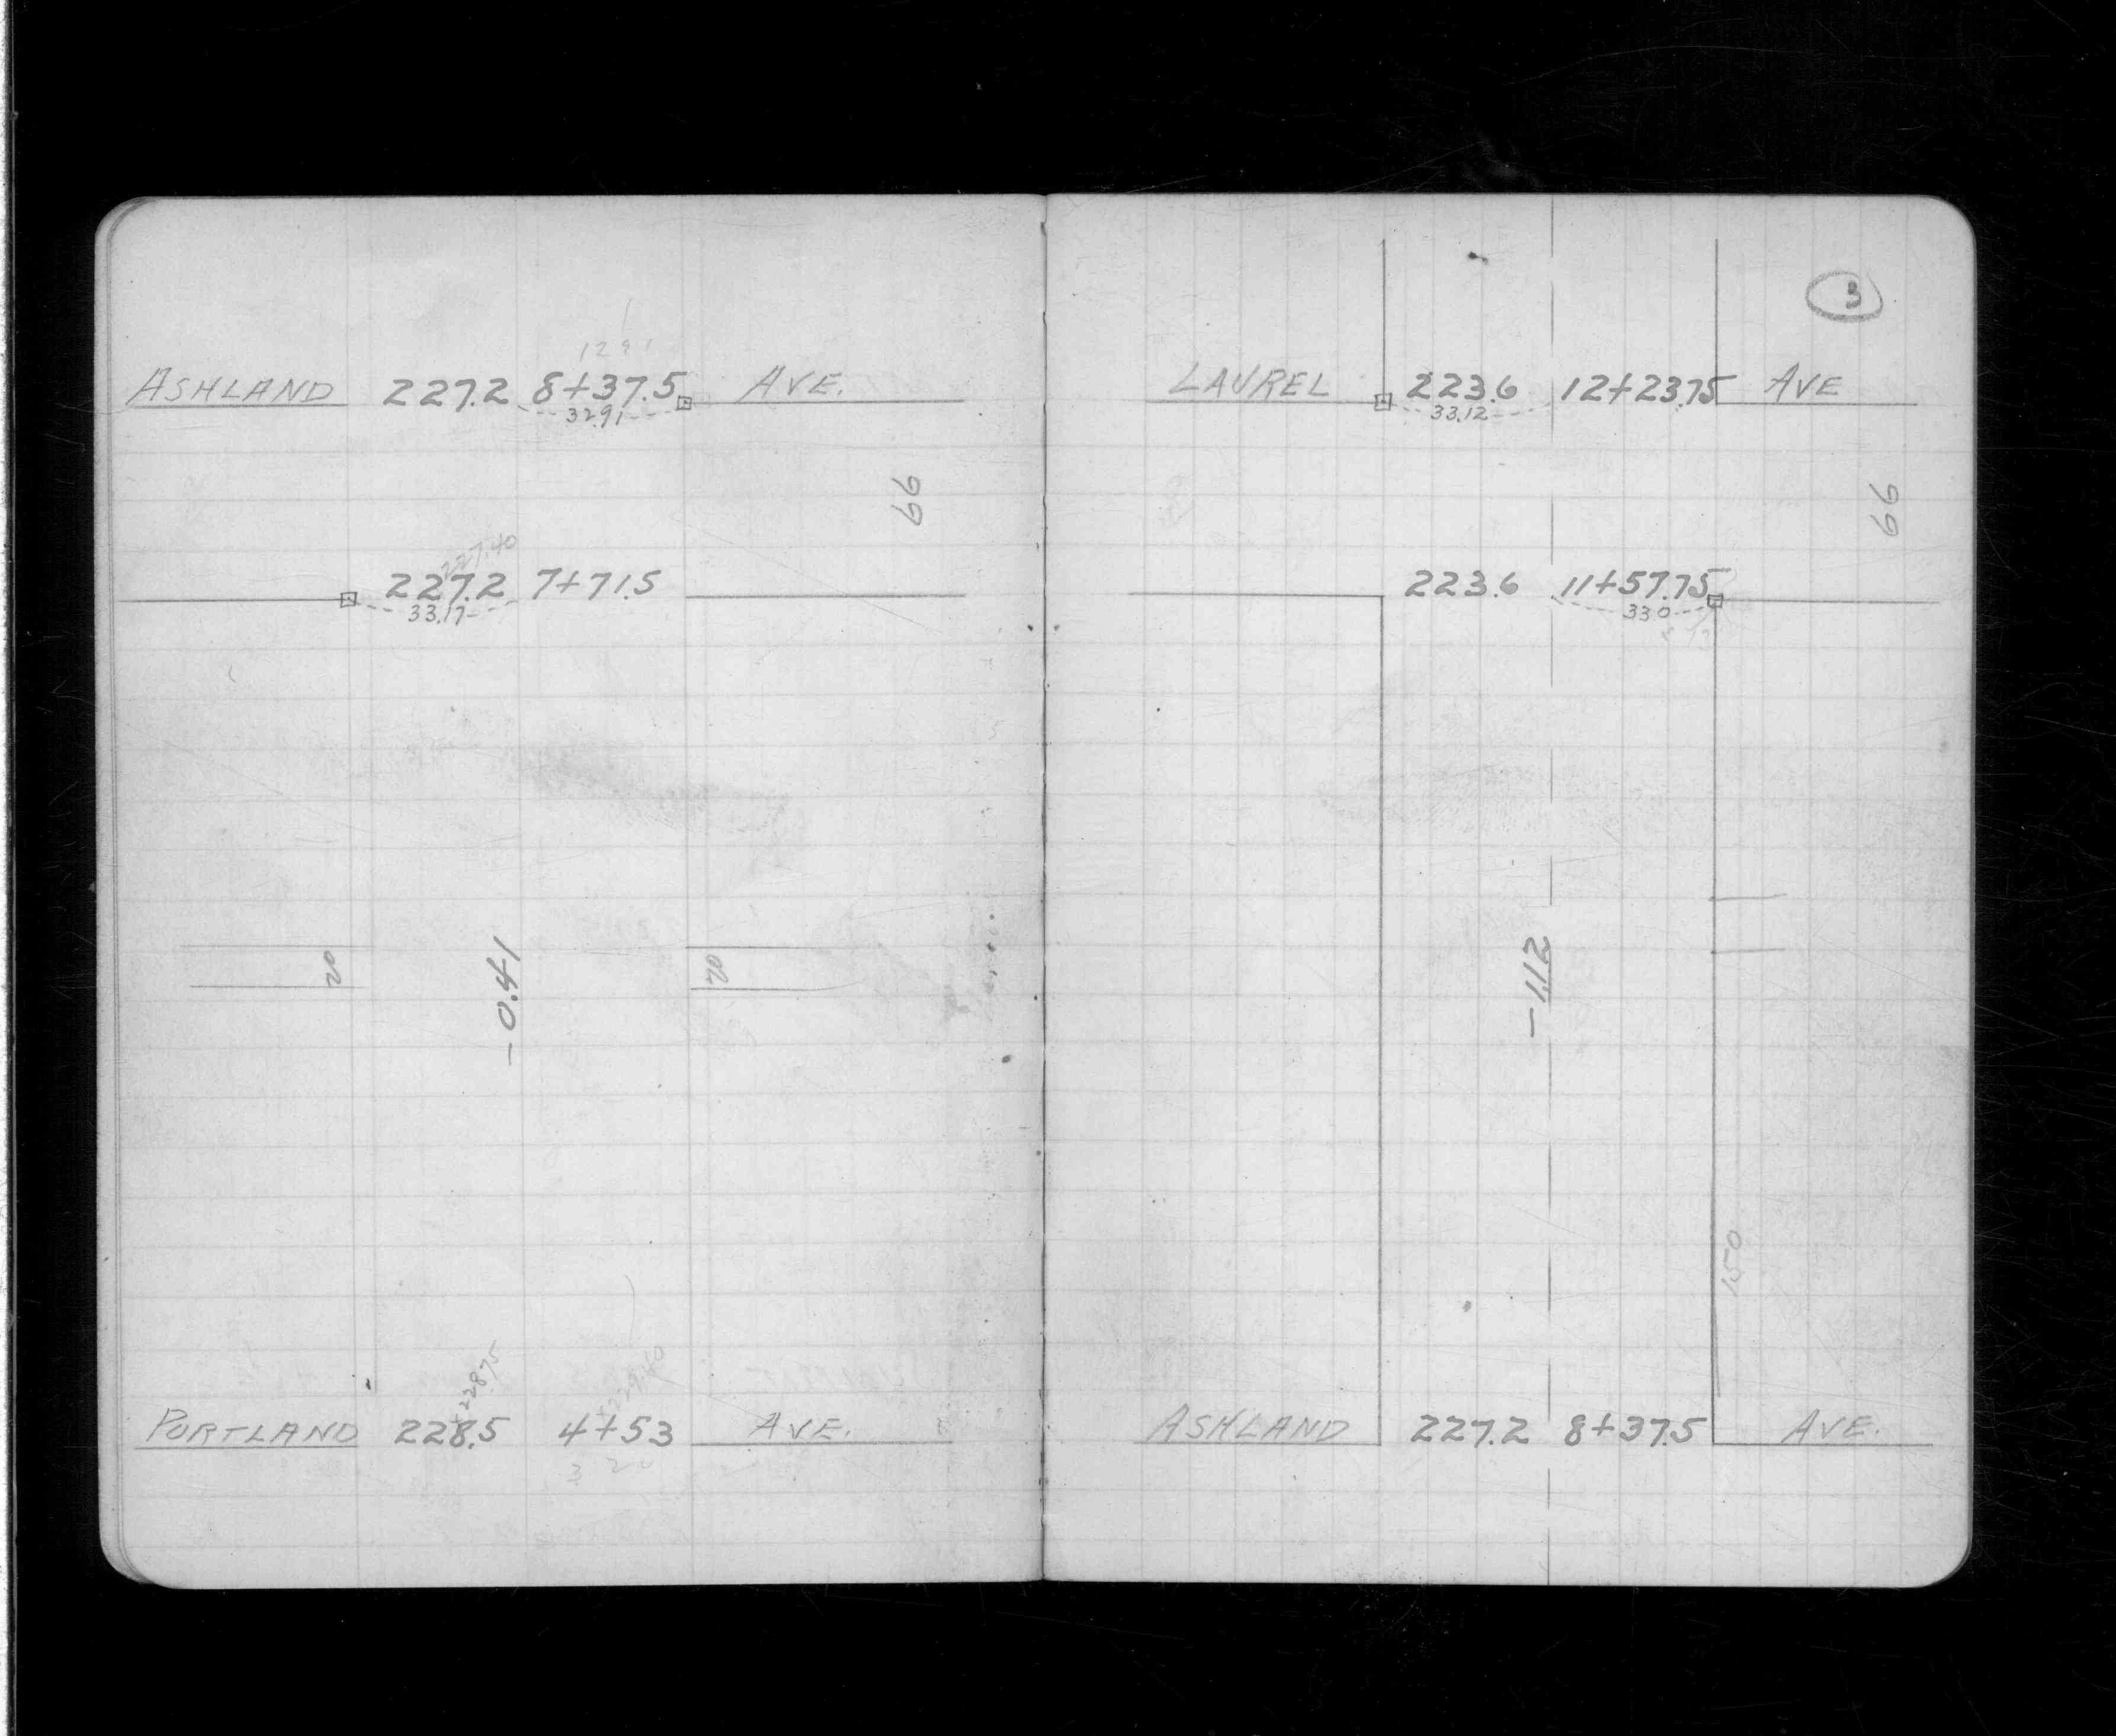 1291
ASHLAND 227.2 8+37.5 AVE.
32.91
66
227.40
227.2 7+71.5
33.17
20
-0.41
20
228.75
PORTLAND 228.5 4+53 AVE.
3
LAUREL 223.6 12+23.75 AVE
33.12
66
223.6 11+57.75
33.0
-1.12
150
ASHLAND 227.2 8+37.5 AVE.